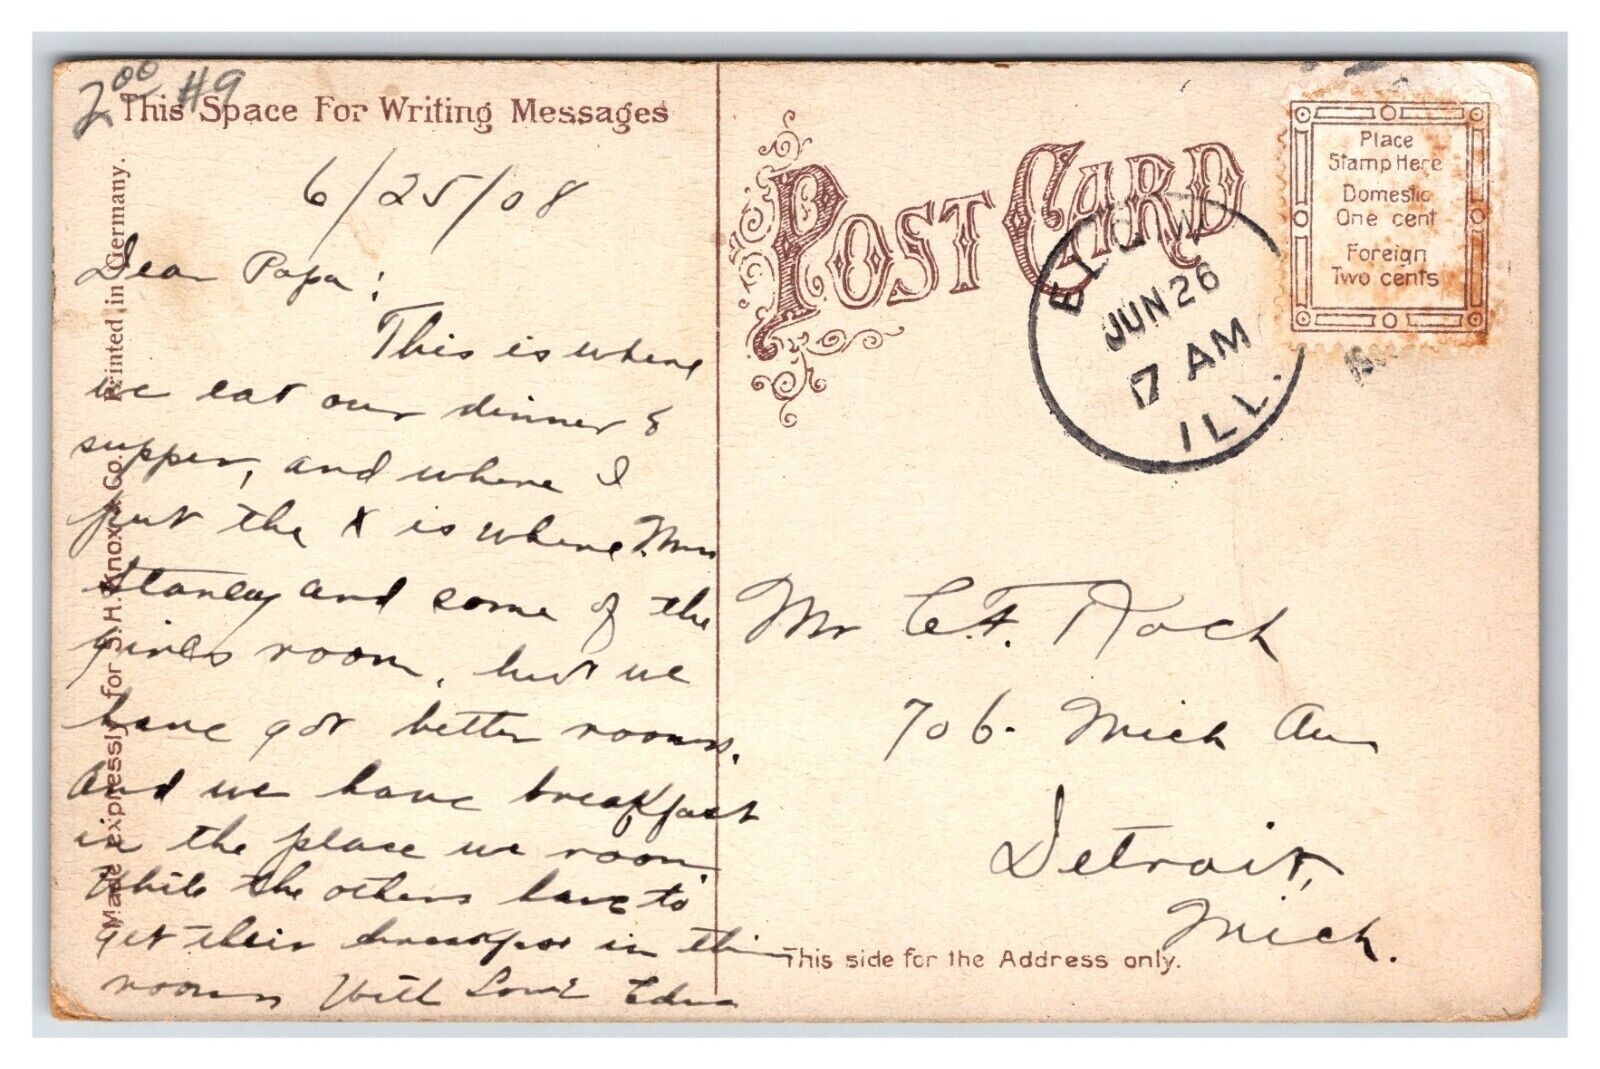 2.00 #9
This Space For Writing Messages
6/25/08
Dear Papa:
This is where
we eat our dinner &
supper, and where I
put the x is where Mrs
Stanley and some of the
girles room, but we
have got better rooms.
And we have breakfast
in the place we room
While the others have to
get their breakfast in their
rooms With Love Edna
Made expressly for S. H. Knox & Co. Printed in Germany.
POST CARD
ELGIN
JUN 26
7 AM
ILL.
Place
Stamp Here
Domestic
One cent
Foreign
Two cents
Mr C. F. Roch
706. Mich Ave
Detroit,
Mich.
This side for the Address only.